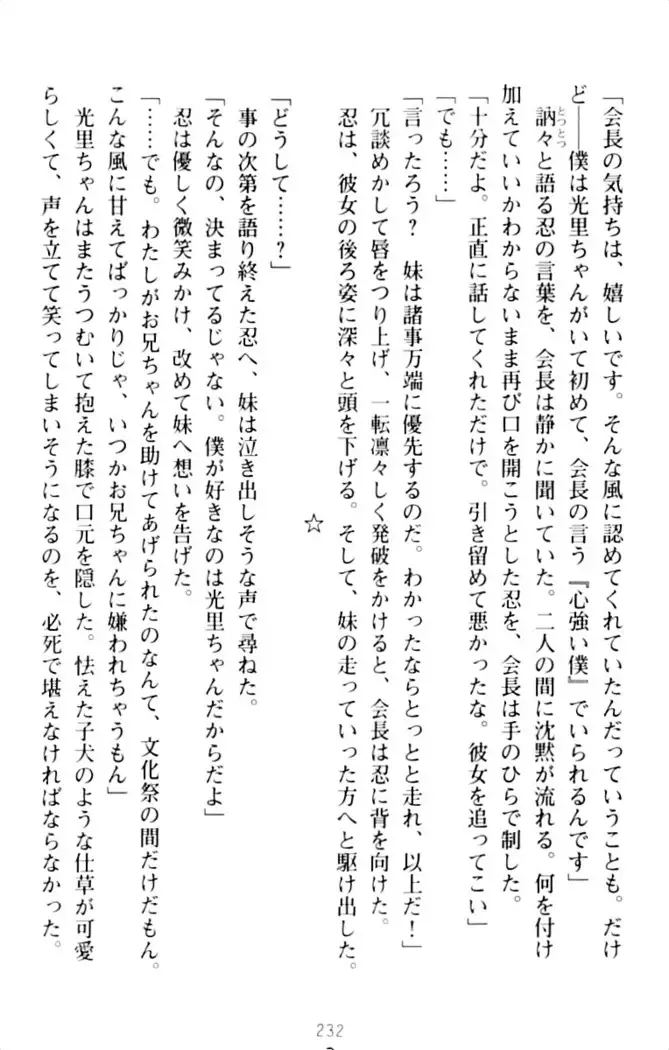 「会長の気持ちは、嬉しいです。そんな風に認めてくれていたんだっていうことも。だけ
ど――僕は光里ちゃんがいて初めて、会長の言う『心強い僕』でいられるんです」
訥々と語る忍の言葉を、会長は静かに聞いていた。二人の間に沈黙が流れる。何を付け
とつとつ
加えていいかわからないまま再び口を開こうとした忍を、会長は手のひらで制した。
「十分だよ。正直に話してくれただけで。引き留めて悪かったな。彼女を追ってこい」
「でも……」
「言ったろう?　妹は諸事万端に優先するのだ。わかったならとっとと走れ、以上だ!」
冗談めかして唇をつり上げ、一転凛々しく発破をかけると、会長は忍に背を向けた。
忍は、彼女の後ろ姿に深々と頭を下げる。そして、妹の走っていった方へと駆け出した。
☆
「どうして……?」
事の次第を語り終えた忍へ、妹は泣き出しそうな声で尋ねた。
「そんなの、決まってるじゃない。僕が好きなのは光里ちゃんだからだよ」
忍は優しく微笑みかけ、改めて妹へ想いを告げた。
「……でも。わたしがお兄ちゃんを助けてあげられたのなんて、文化祭の間だけだもん。
こんな風に甘えてばっかりじゃ、いつかお兄ちゃんに嫌われちゃうもん」
光里ちゃんはまたうつむいて抱えた膝で口元を隠した。怯えた子犬のような仕草が可愛
らしくて、声を立てて笑ってしまいそうになるのを、必死で堪えなければならなかった。
232